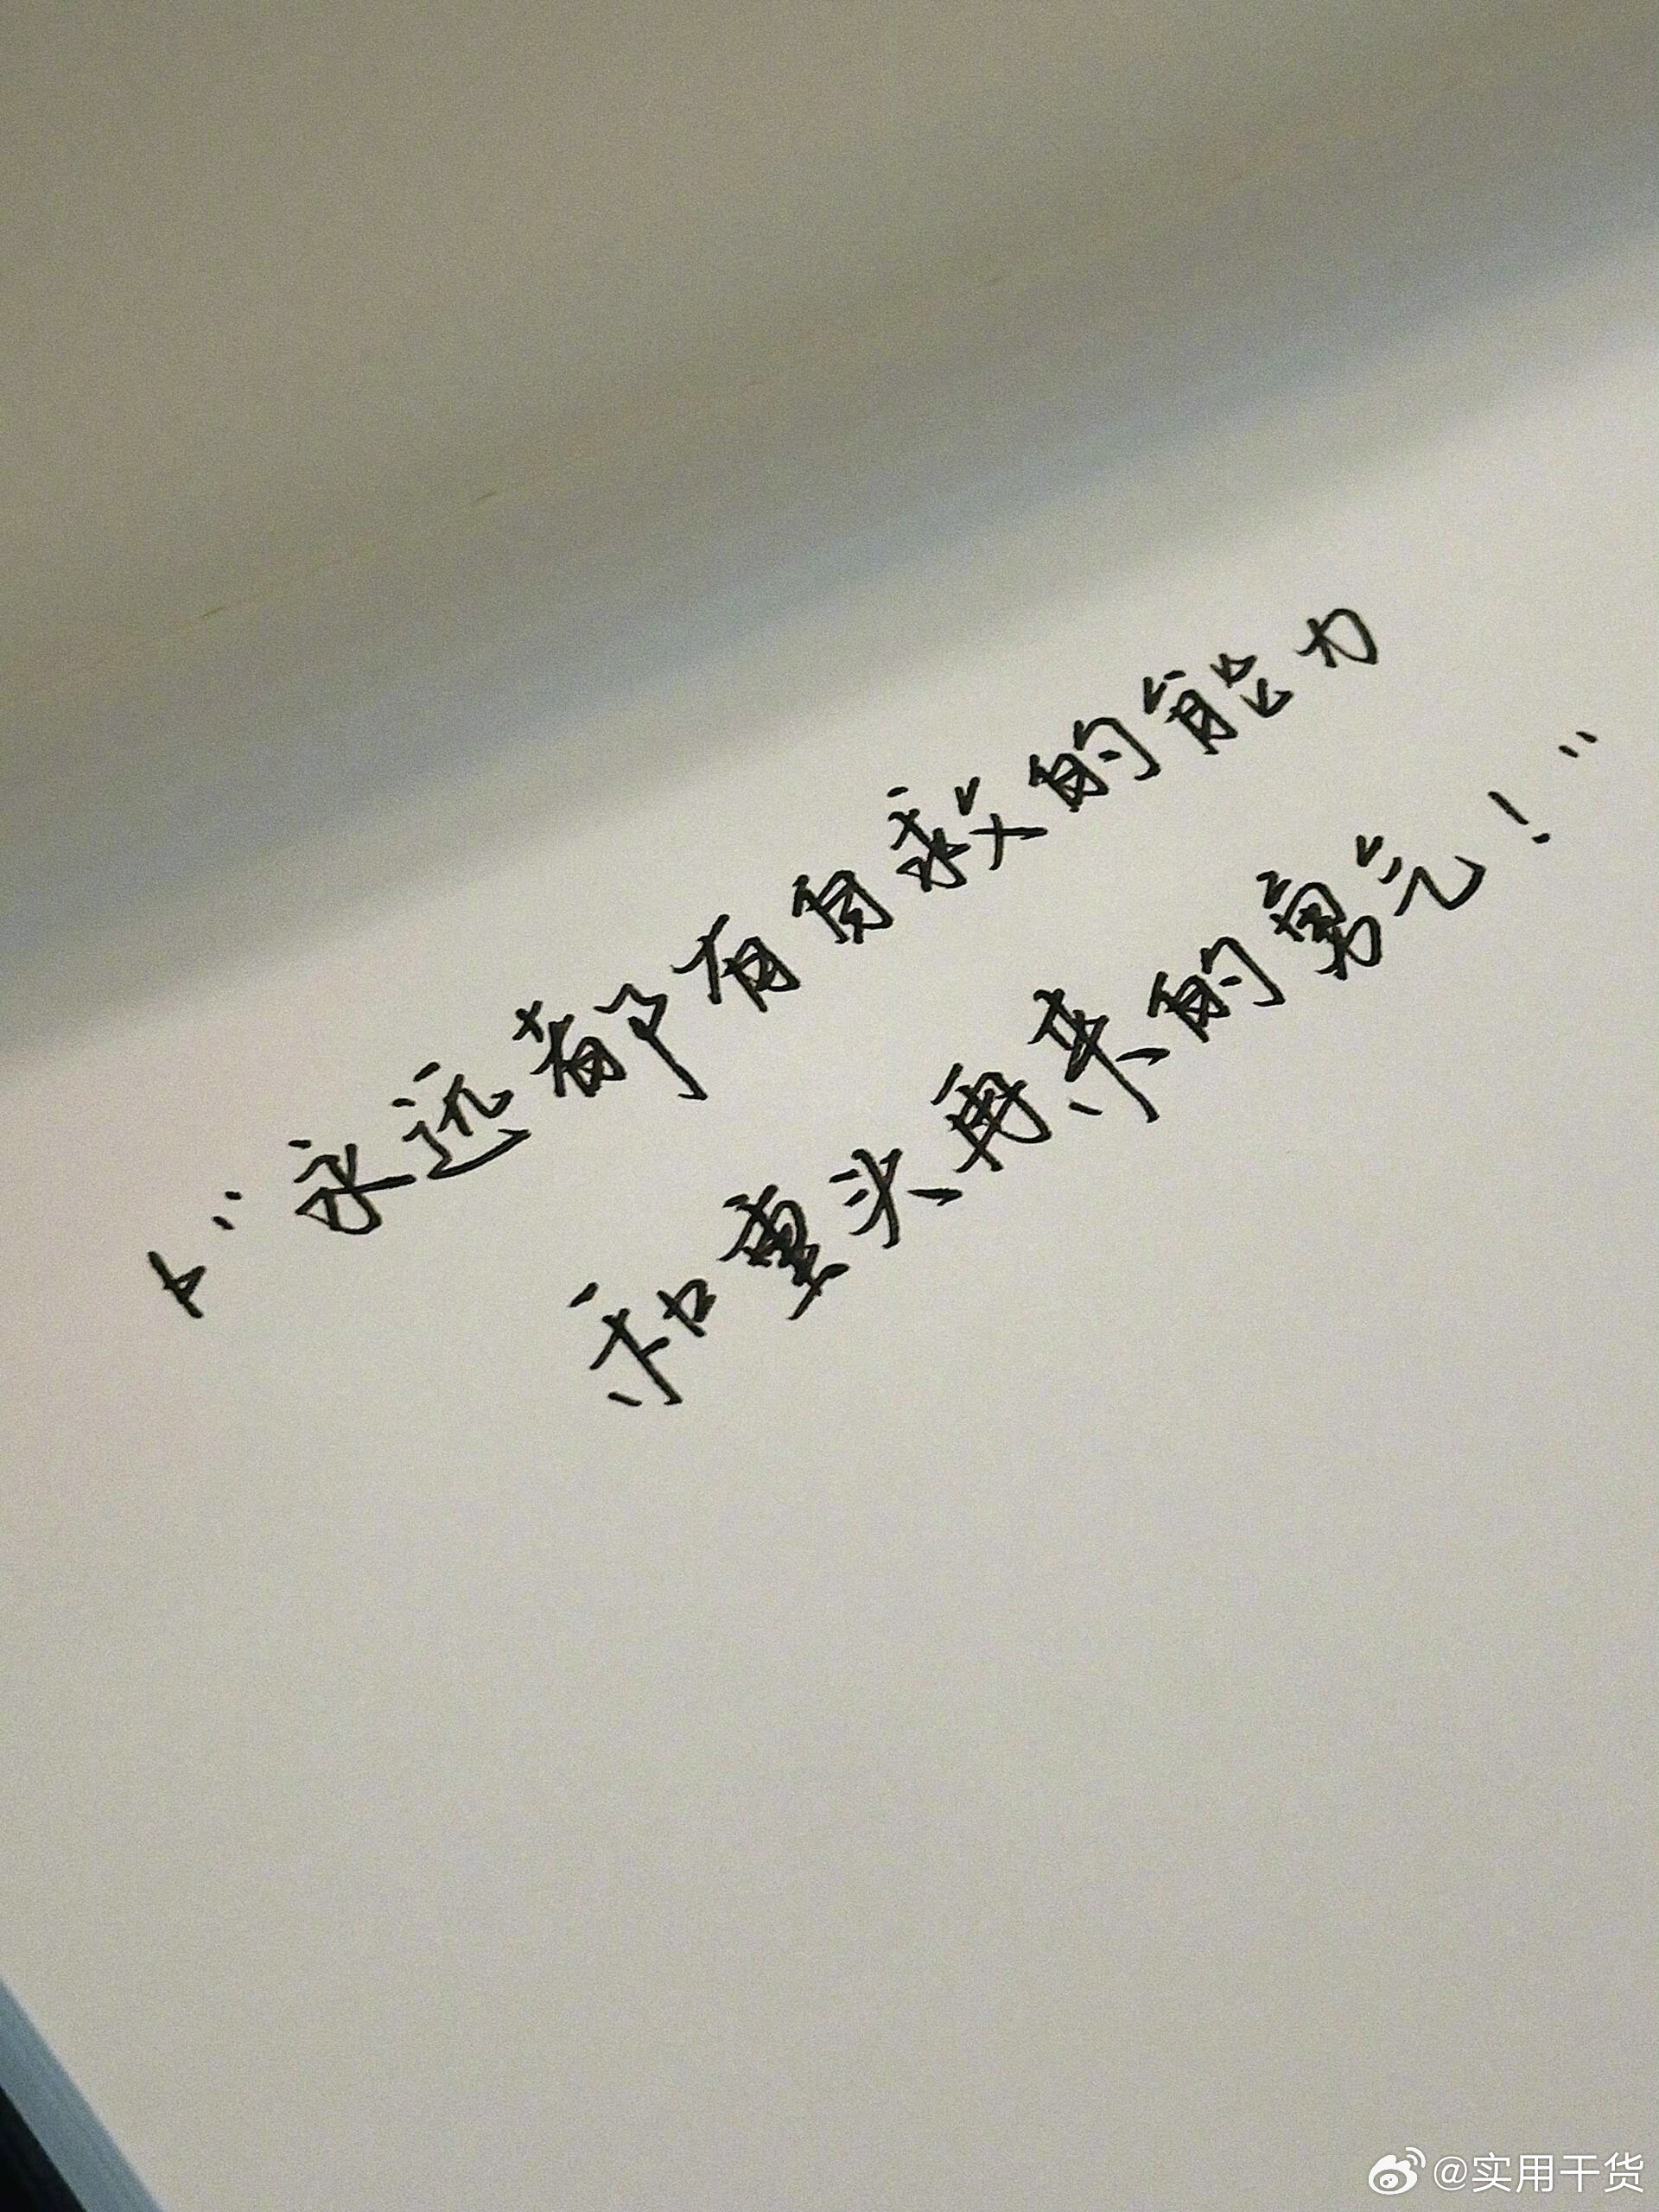 “永远都有自救的能力
和重头再来的勇气！”
@实用干货